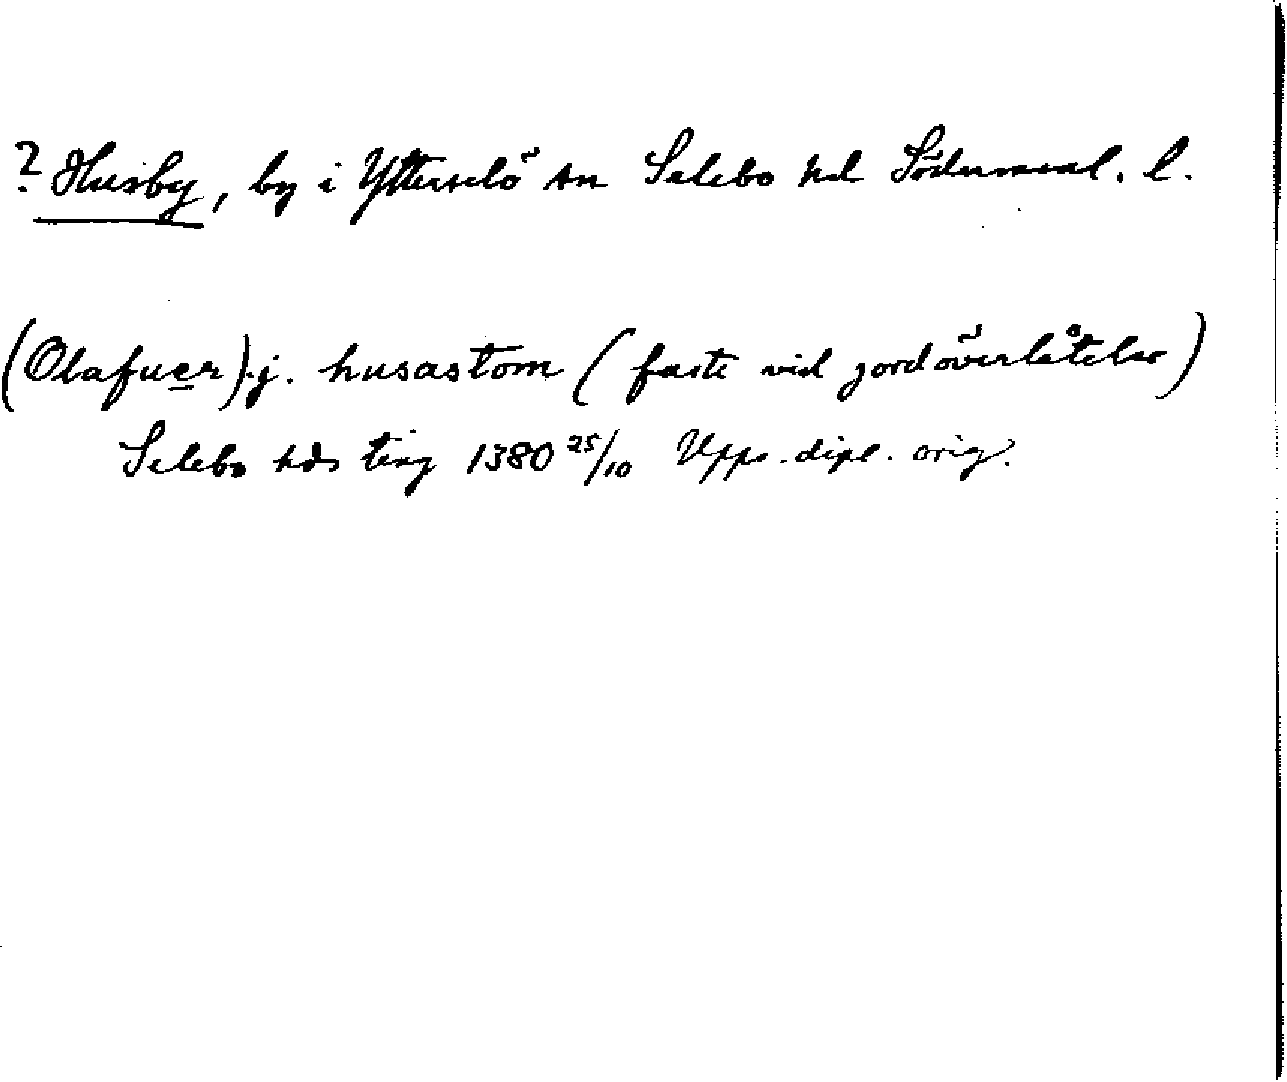 ? Husby, by i Ytterselö sn Selebo hd Södermanl. l.
(Olafuer) j. husastom (faste vid jordöverlåtelse)
Selebo hds ting 1380 25/10 Upps. dipl. orig.